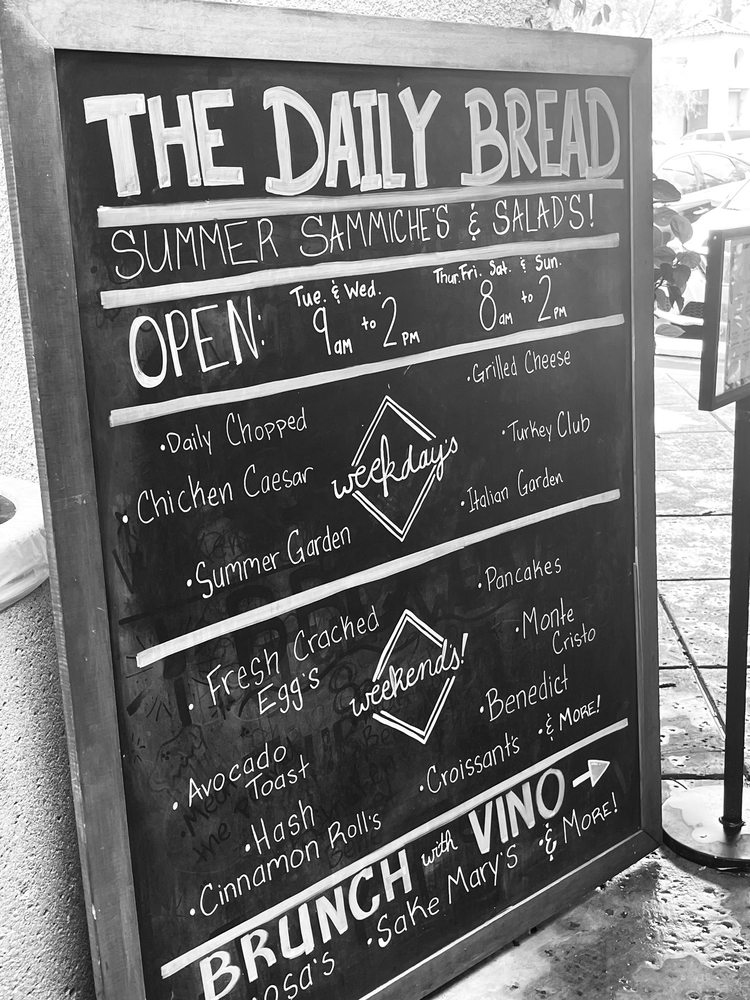 THE DAILY BREAD
SUMMER SAMMICHE'S & SALAD'S!
OPEN: Tue. & Wed. 9am to 2pm Thur. Fri. Sat. & Sun. 8am to 2pm
weekday's
• Daily Chopped
• Chicken Caesar
• Summer Garden
• Grilled Cheese
• Turkey Club
• Italian Garden
weekends!
• Fresh Cracked
Egg's
• Avocado
Toast
• Hash
• Cinnamon Roll's
• Pancakes
• Monte
Cristo
• Benedict
• Croissant's
• & MORE!
BRUNCH with VINO →
osa's • Sake Mary's • & MORE!